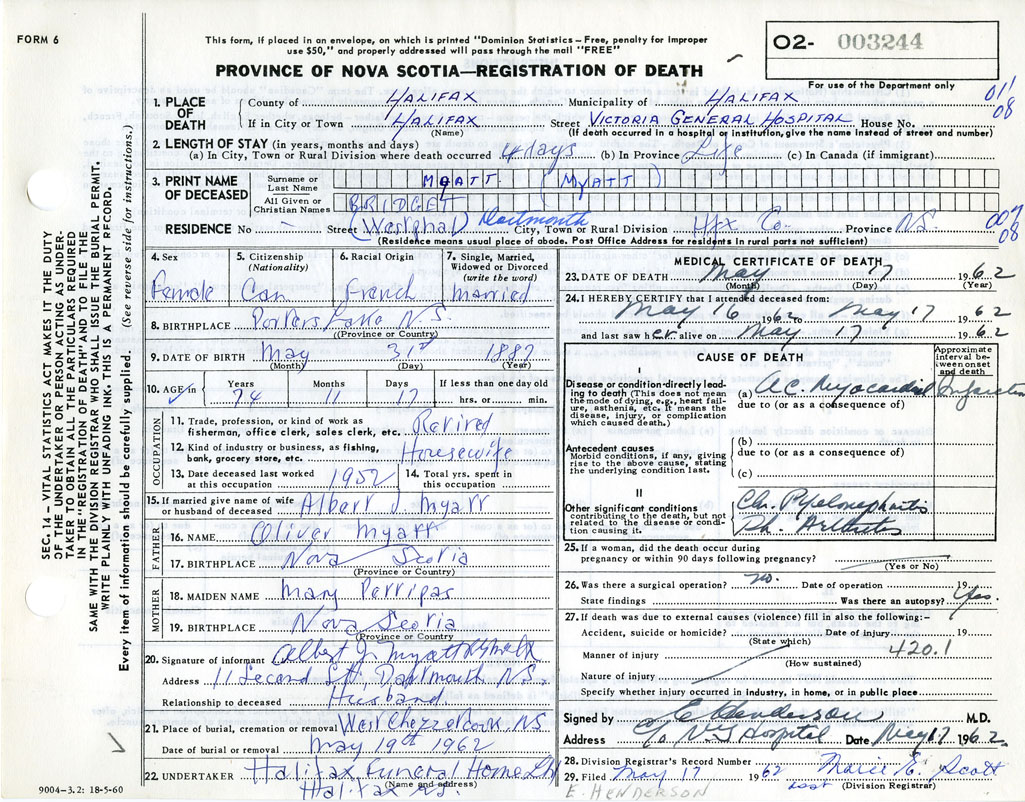 FORM 6
This form, if placed in an envelope, on which is printed "Dominion Statistics – Free, penalty for improper
use $50," and properly addressed will pass through the mail "FREE"
O2- 003244
PROVINCE OF NOVA SCOTIA—REGISTRATION OF DEATH
For use of the Department only
1. PLACE OF DEATH
County of HALIFAX Municipality of HALIFAX 011
If in City or Town HALIFAX Street VICTORIA GENERAL HOSPITAL House No. 08
(Name) (If death occurred in a hospital or institution, give the name instead of street and number)
2. LENGTH OF STAY (in years, months and days)
(a) In City, Town or Rural Division where death occurred 4 days (b) In Province Life (c) In Canada (if immigrant)
3. PRINT NAME OF DECEASED
Surname or Last Name MYATT (MYATT)
All Given or Christian Names BRIDGET
RESIDENCE No – Street (Westphal) Dartmouth City, Town or Rural Division Hfx Co. Province N.S. 007
08
(Residence means usual place of abode. Post Office Address for residents in rural parts not sufficient)
4. Sex Female
5. Citizenship (Nationality) Can
6. Racial Origin French
7. Single, Married, Widowed or Divorced (write the word) Married
8. BIRTHPLACE Porters Lake N.S.
(Province or Country)
9. DATE OF BIRTH May 31st 1887
(Month) (Day) (Year)
10. AGE in Years 74 Months 11 Days 17 If less than one day old
hrs. or min.
OCCUPATION
11. Trade, profession, or kind of work as
fisherman, office clerk, sales clerk, etc. Retired
12. Kind of industry or business, as fishing,
bank, grocery store, etc. Housewife
13. Date deceased last worked
at this occupation 1952
14. Total yrs. spent in
this occupation
15. If married give name of wife
or husband of deceased Albert J. Myatt
FATHER
16. NAME Oliver Myatt
17. BIRTHPLACE Nova Scotia
(Province or Country)
MOTHER
18. MAIDEN NAME Mary
19. BIRTHPLACE Nova Scotia
(Province or Country)
20. Signature of informant Albert J. Myatt
Address 11 Second St. Dartmouth N.S.
Relationship to deceased Husband
21. Place of burial, cremation or removal West Chezzetcook N.S
Date of burial or removal May 19th 1962
22. UNDERTAKER Halifax Funeral Home
(Name and address)
Halifax N.S.
9004-3.2: 18-5-60
MEDICAL CERTIFICATE OF DEATH
23. DATE OF DEATH May 17 1962
(Month) (Day) (Year)
24. I HEREBY CERTIFY that I attended deceased from:
May 16 1962 to May 17 1962
and last saw her alive on May 17 1962
CAUSE OF DEATH
Approximate interval between onset and death
I
Disease or condition-directly leading
to death (This does not mean
the mode of dying, e.g., heart failure,
asthenia, etc. It means the
disease, injury, or complication
which caused death.)
(a) Ac. Myocardial Infarction
due to (or as a consequence of)
Antecedent causes
Morbid conditions, if any, giving
rise to the above cause, stating
the underlying condition last.
(b)
due to (or as a consequence of)
(c)
II
Other significant conditions
contributing to the death, but not
related to the disease or condition
causing it.
Chr. Pyelonephritis
Rh. Arthritis
25. If a woman, did the death occur during
pregnancy or within 90 days following pregnancy?
(Yes or No)
26. Was there a surgical operation? no. Date of operation 19
State findings Was there an autopsy? Yes.
27. If death was due to external causes (violence) fill in also the following:–
Accident, suicide or homicide? Date of injury 19
(State which)
Manner of injury 420.1
(How sustained)
Nature of injury
Specify whether injury occurred in industry, in home, or in public place
Signed by E Henderson M.D.
Address c/o V.G Hospital Date May 17 1962.
28. Division Registrar's Record Number
29. Filed May 17 1962 Marie E. Scott
asst (Division Registrar)
E. HENDERSON
SEC. 14 – VITAL STATISTICS ACT MAKES IT THE DUTY
OF THE UNDERTAKER OR PERSON ACTING AS UNDERTAKER
TO OBTAIN ALL THE PARTICULARS REQUIRED
IN THE "REGISTRATION OF DEATH" AND TO FILE THE
SAME WITH THE DIVISION REGISTRAR WHO SHALL ISSUE THE BURIAL PERMIT.
WRITE PLAINLY WITH UNFADING INK. THIS IS A PERMANENT RECORD.
Every item of information should be carefully supplied. (See reverse side for instructions.)